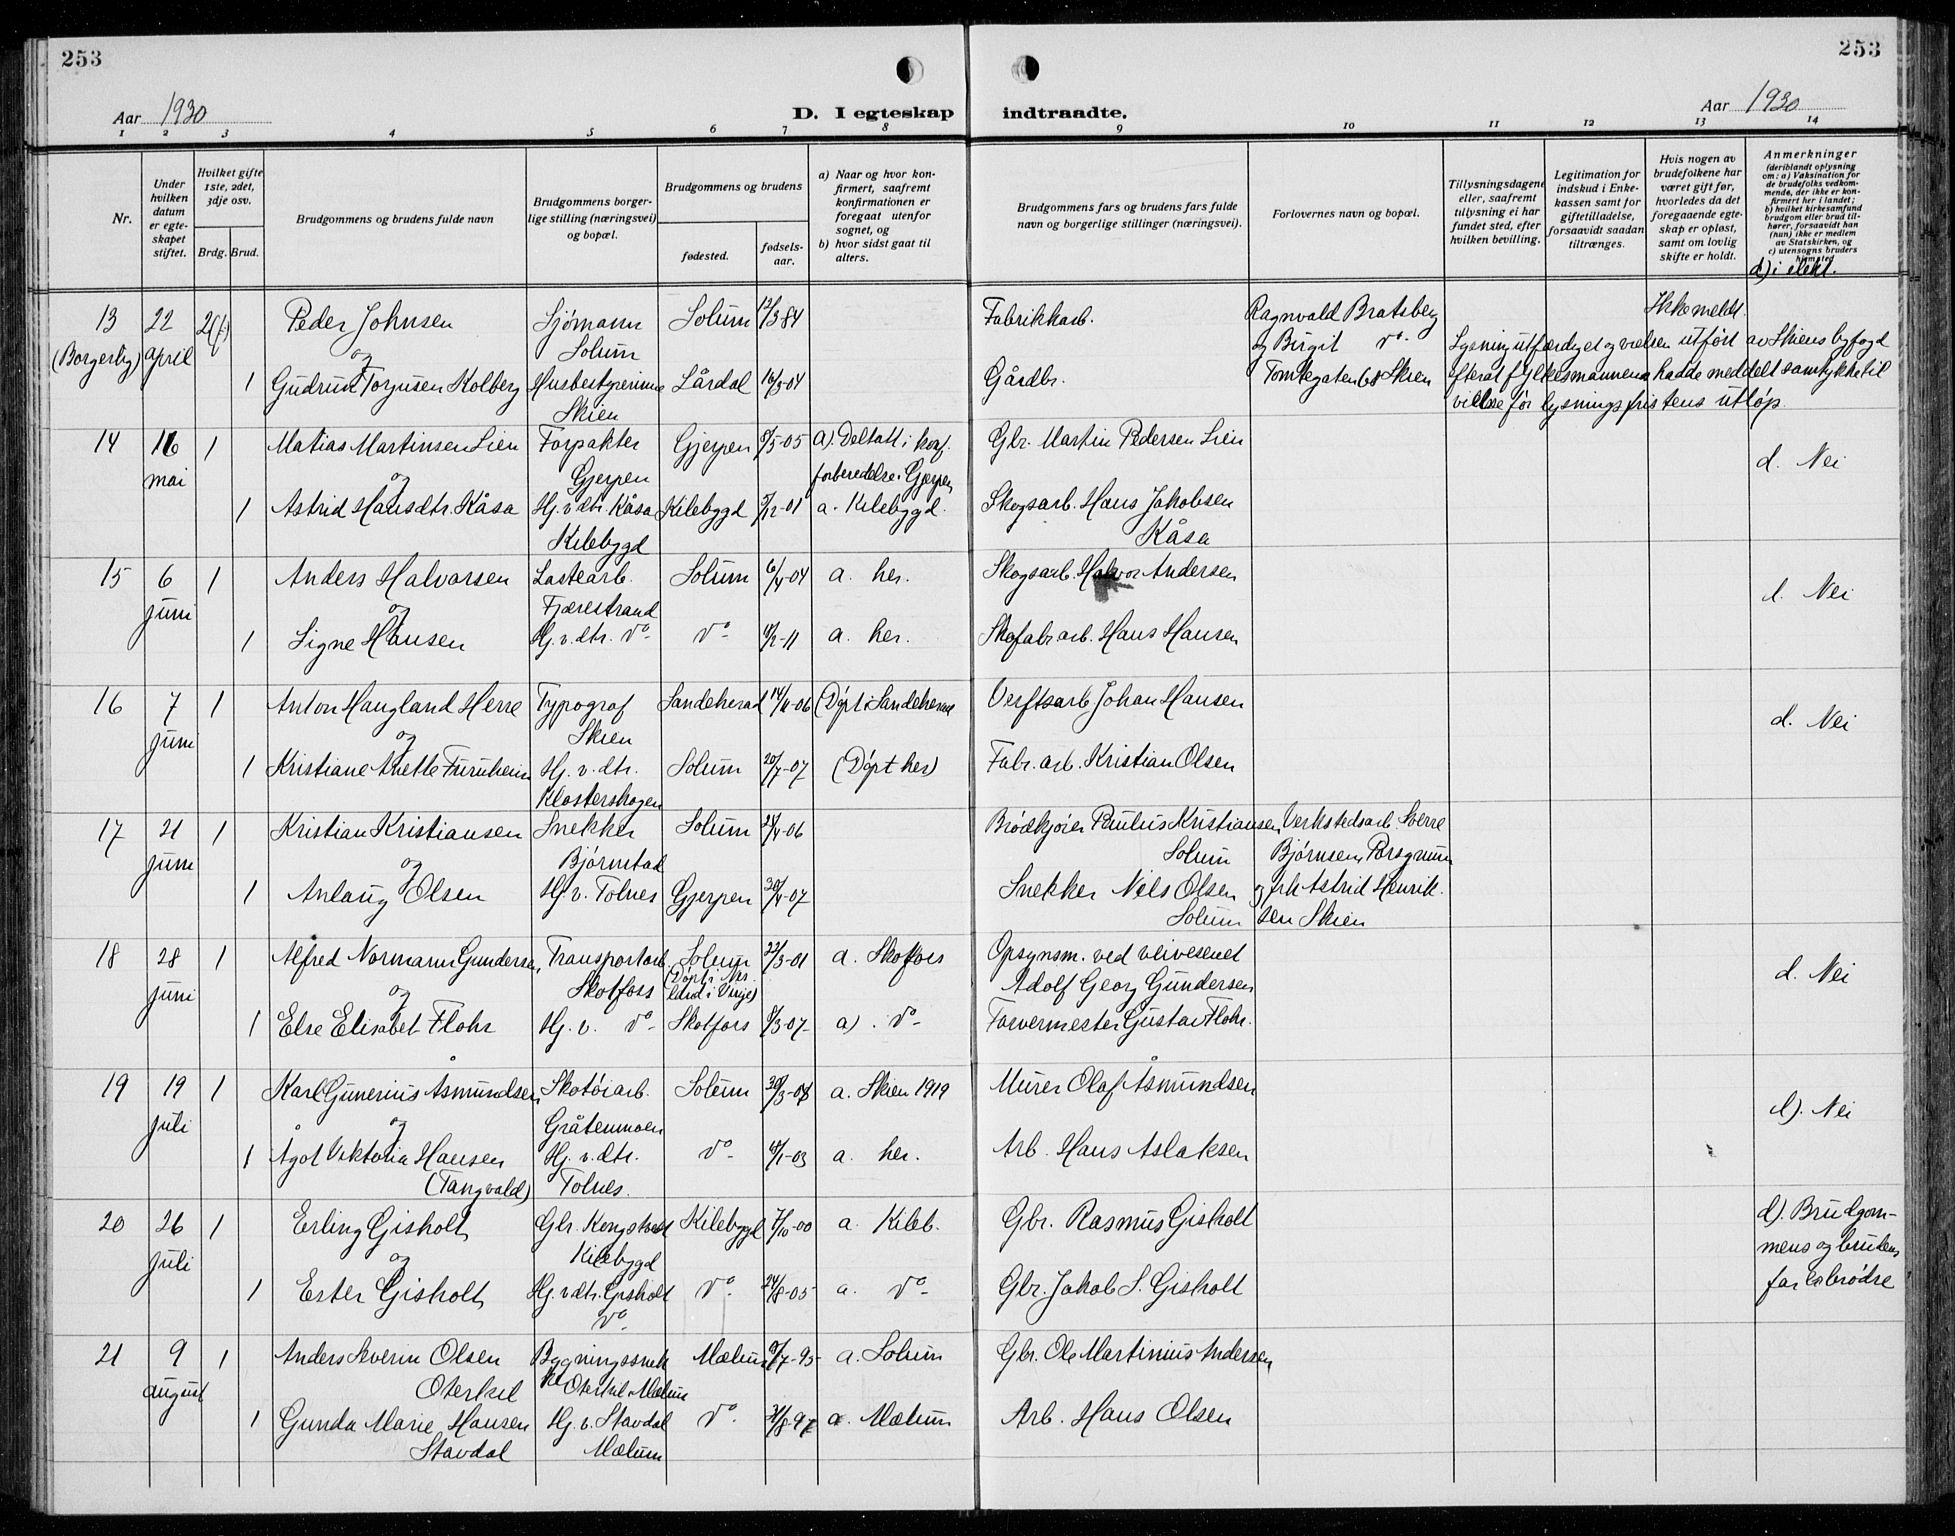 253
253
Aar 1930
D. I egteskap
indtraadte.
Aar 1930
1 2 3 4 5 6 7 8 9 10 11 12 13 14
Nr.
Under hvilken datum er egteskapet stiftet.
Hvilket gifte 1ste, 2det, 3dje osv.
Brdg. Brud.
Brudgommens og brudens fulde navn
Brudgommens borgerlige stilling (næringsvei) og bopæl.
Brudgommens og brudens
fødested.
fødselsaar.
a) Naar og hvor konfirmert, saafremt konfirmationen er foregaat utenfor sognet, og
b) hvor sidst gaat til alters.
Brudgommens fars og brudens fars fulde navn og borgerlige stillinger (næringsvei).
Forlovernes navn og bopæl.
Tillysningsdagene eller, saafremt tillysning ei har fundet sted, efter hvilken bevilling.
Legitimation for indskud i Enkekassen samt for giftetilladelse, forsaavidt saadan tiltrænges.
Hvis nogen av brudefolkene har været gift før, hvorledes da det foregaaende egteskap er opløst, samt om lovlig skifte er holdt.
Anmerkninger
(deriblandt oplysning om: a) Vaksination for de brudefolks vedkommende, der ikke er konfirmert her i landet; b) hvilket kirkesamfund brudgom eller brud tilhører, forsaavidt han (hun) ikke er medlem av Statskirken, og c) utensogns bruders hjemsted
d) i slekt.
13 22 2(f) Peder Johnsen Sjømann Solum 12/3 84 Fabrikkarb. Ragnvald Bratsberg Ikke meldt.
(Borgerlig) april og Solum og Birgit do. Lysning utfærdyet og vielsen utført av Skiens byfogd
1 Gudrun Torjusen Kolberg Husbestyrerinne Lårdal 16/3 04 Gårdbr. Tomtegaten 68 Skien efterat fylkesmannen hadde meddelt samtykke til
Skien vielse før lysningsfristens utløp.
14 16 1 Matias Martinsen Lien Forpakter Gjerpen 9/5-05 a). Deltatt i konf. Gbr. Martin Pedersen Lien
mai og Gjerpen forberedelse i Gjerpen d. Nei
1 Astrid Hansdtr. Kåsa Hj. v. dtr. Kåsa Kilebygd 5/12-01 a. Kilebygd. Skogsarb. Hans Jakobsen
Kilebygd Kåsa
15 6 1 Anders Halvorsen Lastearb. Solum 6/4-04 a. her. Skogsarb. Halvor Andersen
juni og Fjærestrand d. Nei
1 Signe Hansen Hj. v. dtr. do. do. 4/2-11 a. her. Skofabr arb. Hans Hansen
16 7 1 Anton Haugland Herre Typograf Sandeherad 14/11-06 (Døpt i Sandeherad Verftsarb Johan Hansen
juni og Skien d. Nei
1 Kristiane Anette Furuheim Hj. v. dtr. Solum 20/7-07 (Døpt her) Fabr. arb. Kristian Olsen
Klosterskogen
17 21 1 Kristian Kristiansen Snekker Solum 24/4-06 Brødkjører Paulus Kristiansen Verkstedsarb. Sverre
juni og Bjørnstad Solum Bjørnsen, Porsgrunn
1 Anlaug Olsen Hj. v. Tolnes Gjerpen 30/4-07 Snekker Nels Olsen og frk Astrid Henrik-
Solum sen Skien
18 28 1 Alfred Normann Gundersen, Transportarb Solum 22/3-01 a. Skotfoss Opsynsm. ved veivesenet
juni og Skotfoss Adolf Georg Gundersen d. Nei
1 Else Elisabet Flohr Hj. v. do. Skotfoss 8/3-07 a). do. Farvermester Gustav Flohr.
19 19 1 Karl Gunerius Åsmundsen, Skotøiarb. Solum 30/3-04 a. Skien 1919 Murer Olaf Åsmundsen
juli og Gråtenmoen d). Nei
1 Ågot Viktoria Hansen Hj. v. dtr. do. 4/1-03 a. her. Arb. Hans Aslaksen
(Tangvald) Tolnes.
20 26 1 Erling Gisholt, Gbr. Kongsholt Kilebygd 7/10-00 a. Kileb. Gbr. Rasmus Gisholt d). Brudgom-
juli og Kilebygd mens og brudens
1 Ester Gisholt, Hj. v dtr. Gisholt do. 24/8-05 a. do. Gbr. Jakob S. Gisholt far er brødre
do.
21 9 1 Anders Severin Olsen Bygningssnek- Mælum 9/7-95 a. Solum Gbr. Ole Martinius Andersen
august Oterkil ker Oterkil Mælum
1 Gunda Marie Hansen Hj. v. Stavdal do. 31/8-97 a. Mælum Arb. Hans Olsen
Stavdal Mælum